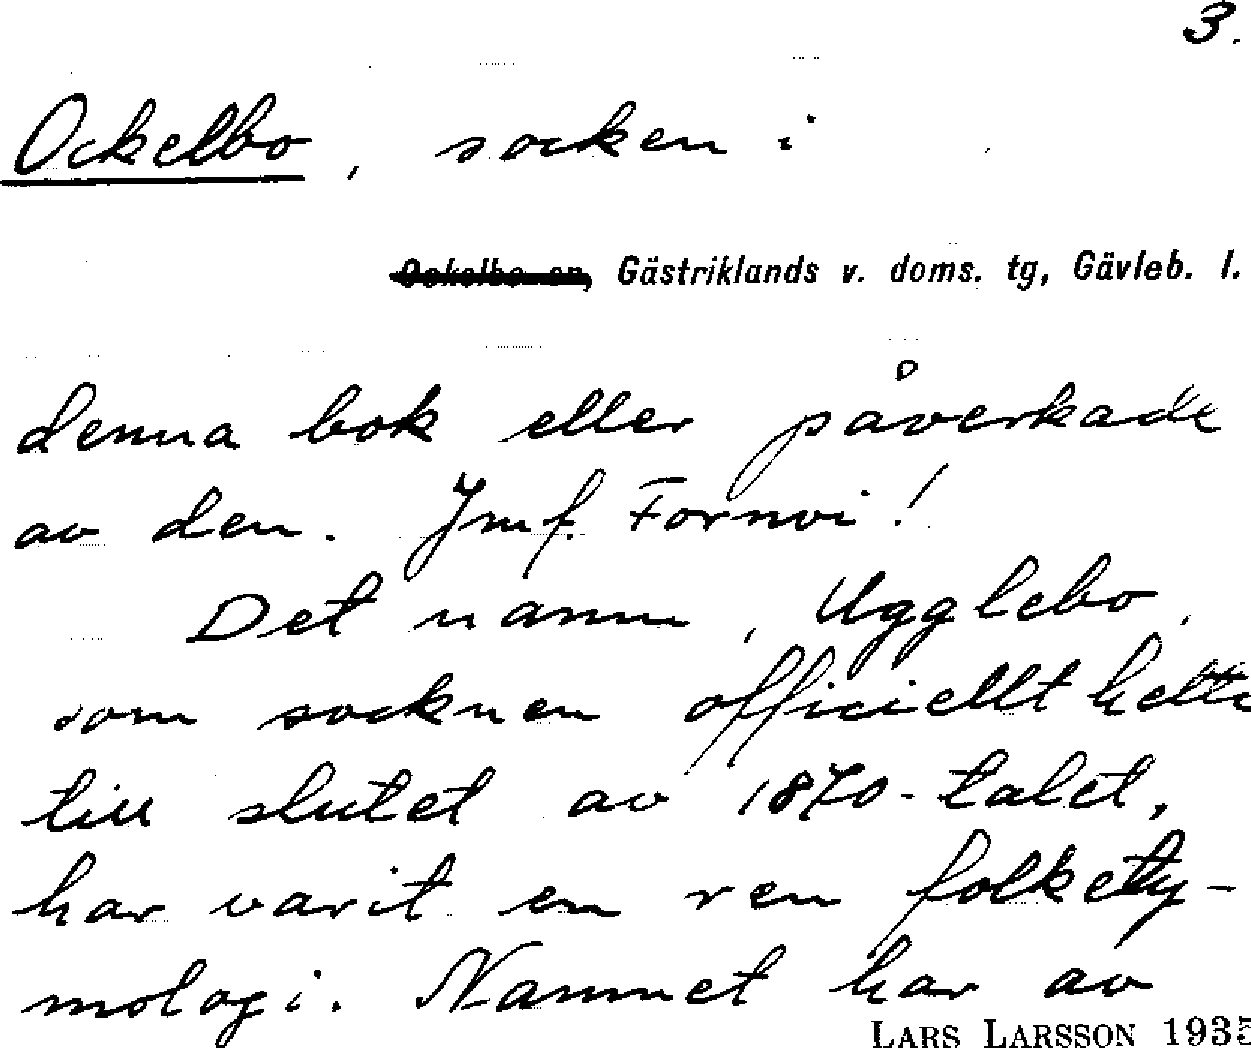 3.
Ockelbo, socken i
Ockelbo sn, Gästriklands v. doms. tg, Gävleb. l.
denna bok eller påverkade
av den. Jmf. Fornvi!
Det namn, Ugglebo,
som socknen officiellt hette
till slutet av 1870-talet,
har varit en ren folkety-
mologi. Namnet har av
LARS LARSSON 1935